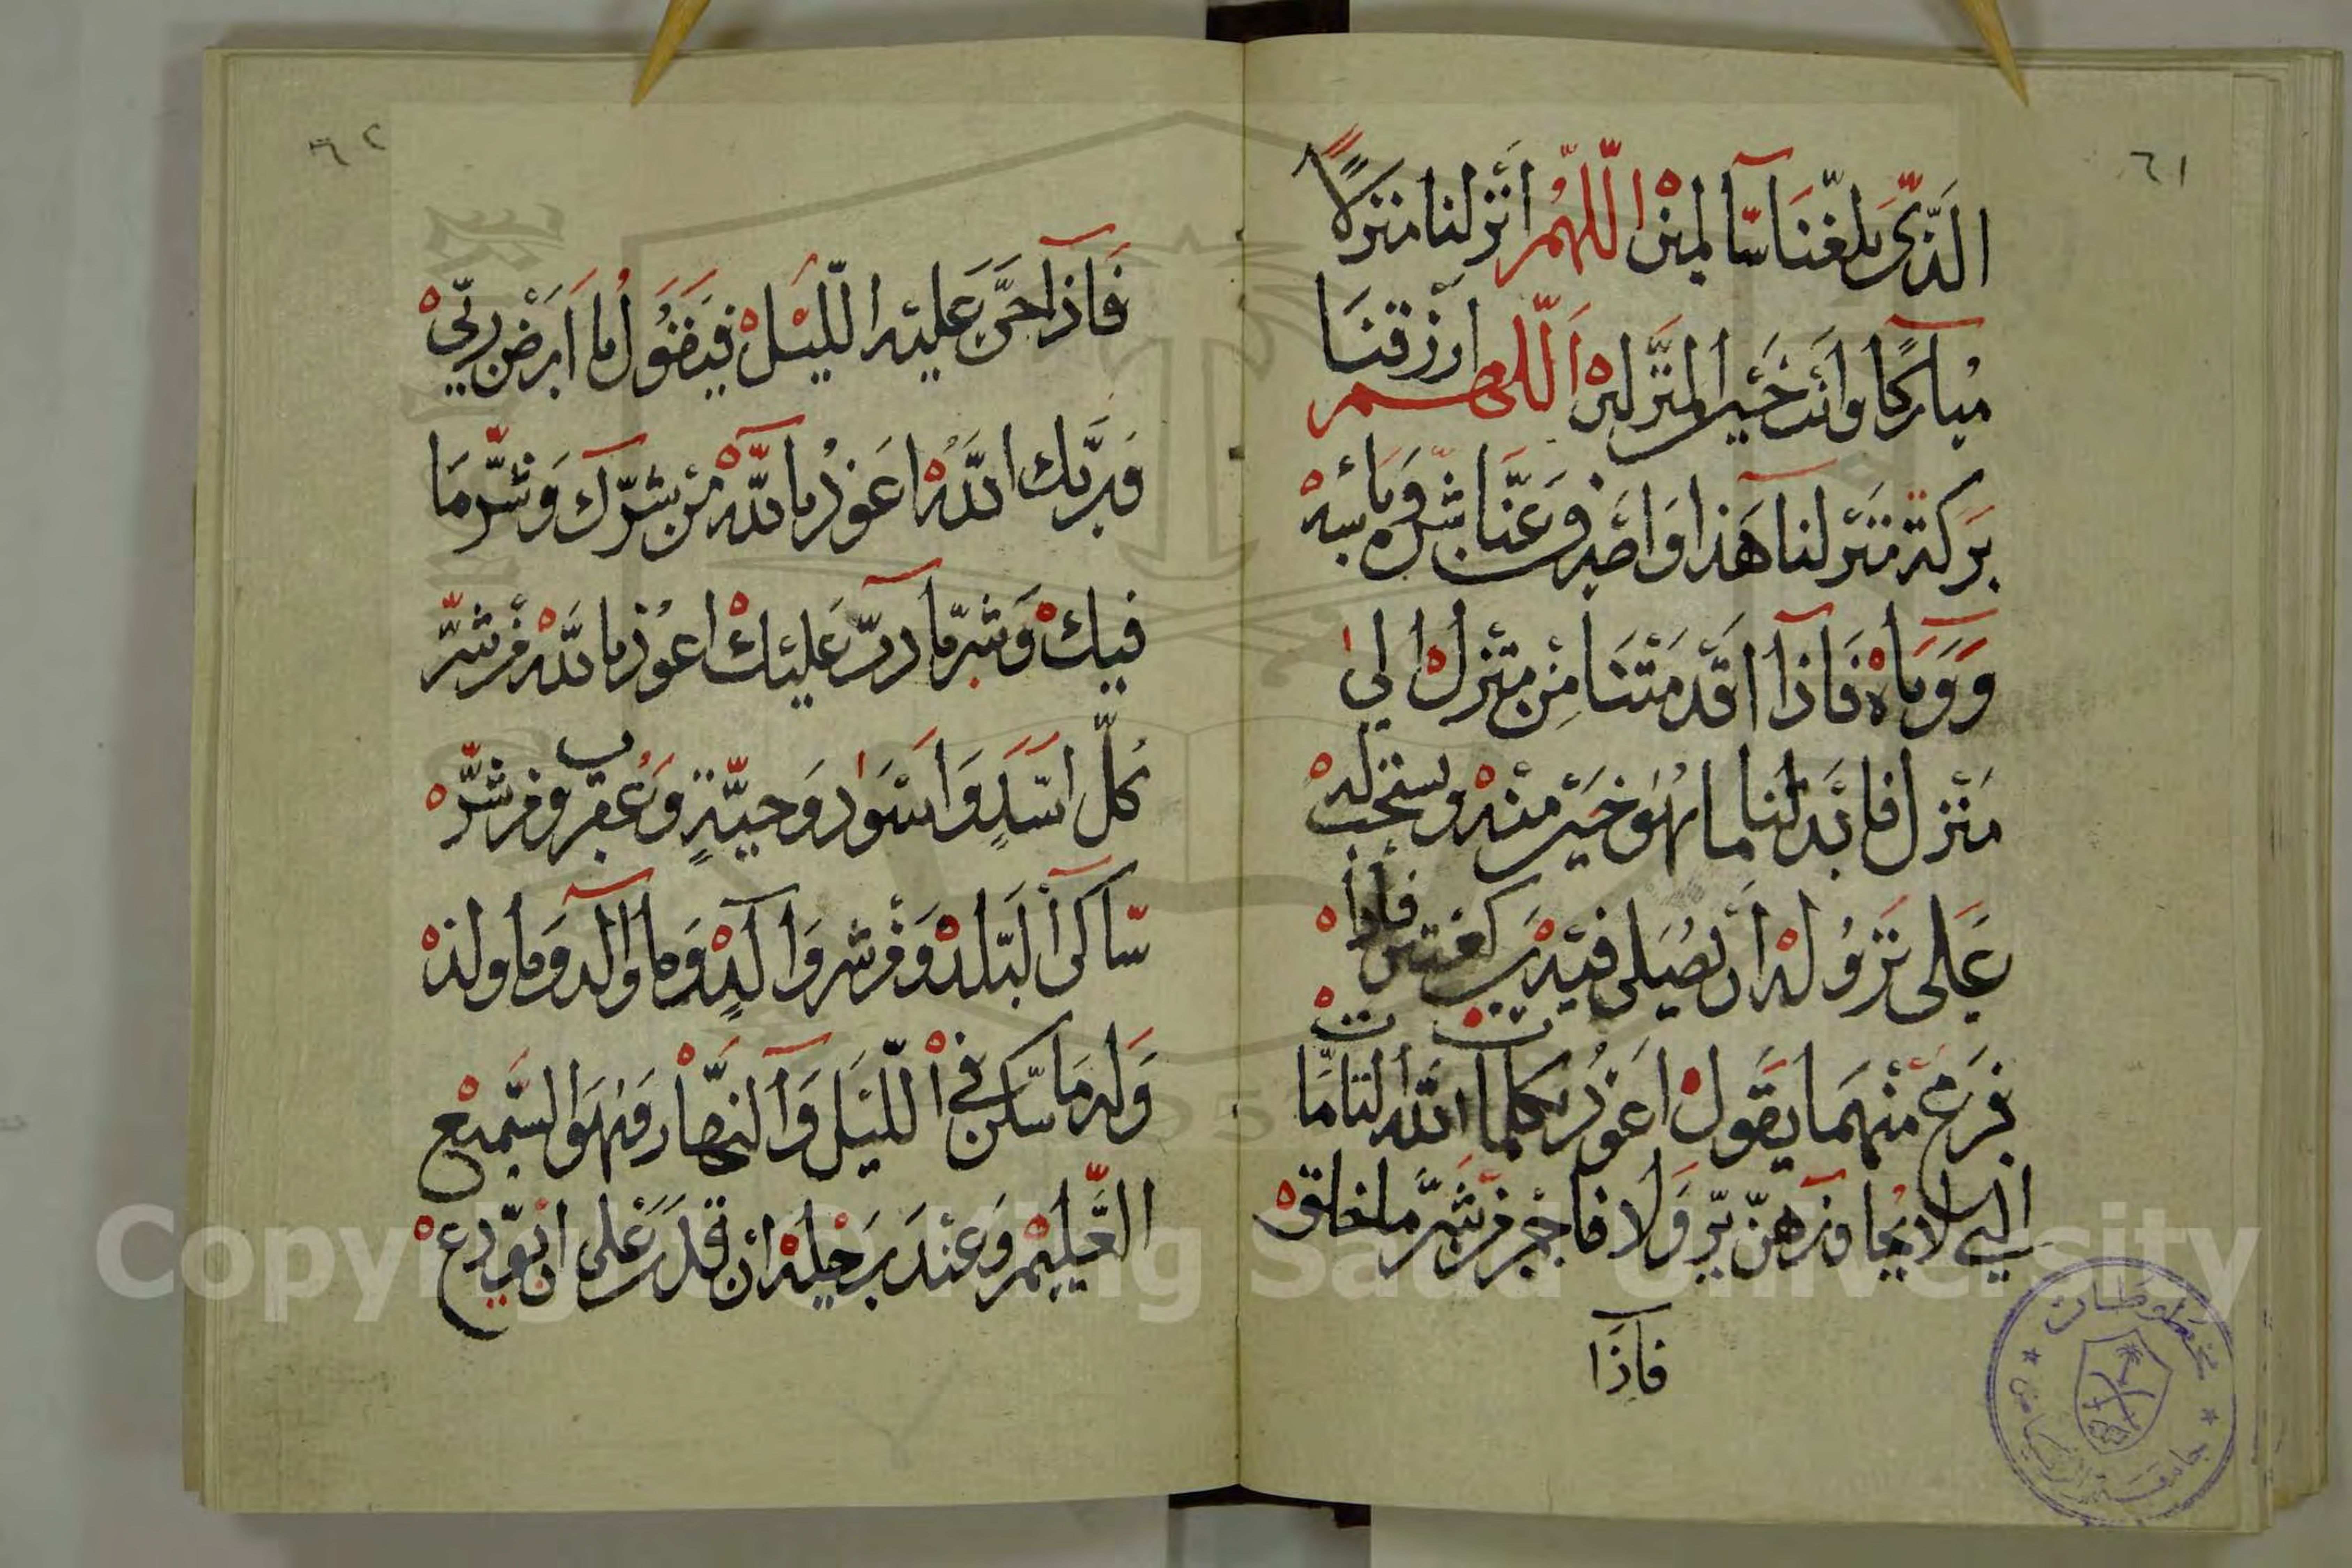 ٦١
الذي بلغنا سالمين اللهم أنزلنا منزلا
مباركا وأنت خير المنزلين اللهم ارزقنا
بركة منزلنا هذا واصرف عنا شره وبأسه
ووباه فإذا اقدمتنا من منزل إلى
منزل فابدلنا ما هو خير منه ويستحب له
على نزوله أن يصلي فيه ركعتين فإذا
فرغ منهما يقول اعوذ بكلمات الله التامات
التي لا يجاوزهن بر ولا فاجر من شر ما خلق
فإذا
٦٢
فإذا جن عليه الليل فيقول يا ارض ربي
وربك الله اعوذ بالله من شرك وشر ما
فيك وشر ما دب عليك اعوذ بالله من شر
كل اسد واسود وحية وعقرب ومن شر
ساكن البلد ومن شر والد وما والد وما ولد
وله ما سكن في الليل والنهار وهو السميع
العليم وعند رحيله ان قدر على ان يودع
مخطوطات
جامعة الرياض
Copyright © King Saud University